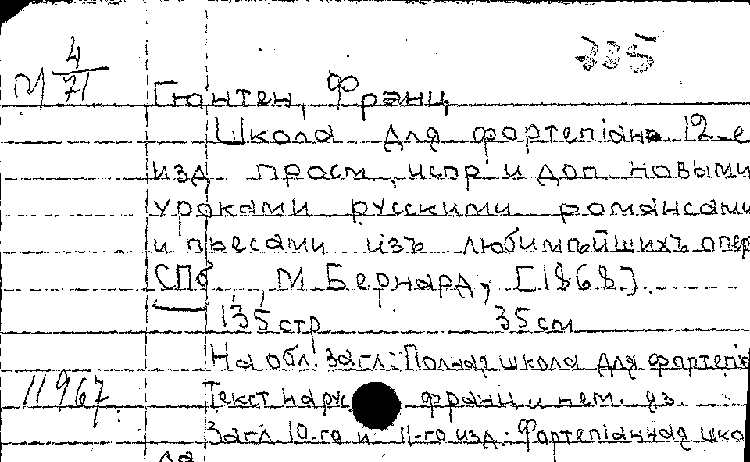 М 4/71
335
Гюнтен, Франц
Школа для фортепiано 12-е
изд. просм., испр. и доп. новыми
уроками русскими романсами
и пьесами изъ любимѣйшихъ опер
СПб, М. Бернард, [1868].
135 стр. 35 см
На обл. загл.: Полная школа для фортепiа
11967.
Текст на рус. франц. и нем. яз.
Загл. 10-го и 11-го изд.: Фортепiанная шко
ла